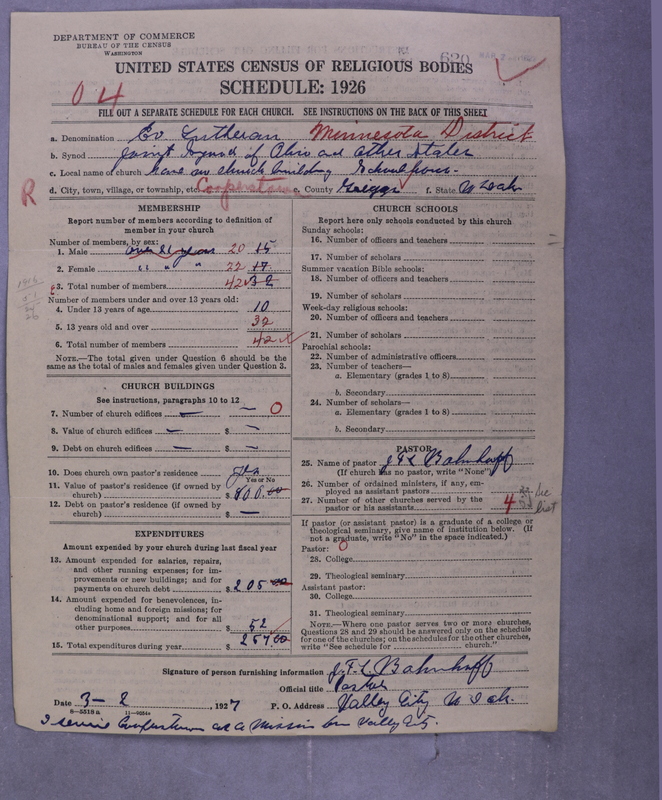 DEPARTMENT OF COMMERCE
BUREAU OF THE CENSUS
WASHINGTON
620
UNITED STATES CENSUS OF RELIGIOUS BODIES
SCHEDULE: 1926
04
FILL OUT A SEPARATE SCHEDULE FOR EACH CHURCH. SEE INSTRUCTIONS ON THE BACK OF THIS SHEET
a. Denomination Ev Lutheran Minnesota District
b. Synod Joint Synod of Ohio and other States
c. Local name of church Have no church building
R d. City, town, village, or township, etc. Cooperstown e. County Griggs f. State N Dak
MEMBERSHIP
Report number of members according to definition of
member in your church
Number of members, by sex:
1. Male over 21 years 20 15
2. Female " " " 22 17
3. Total number of members 42 32
Number of members under and over 13 years old:
4. Under 13 years of age 10
5. 13 years old and over 32
6. Total number of members 42
NOTE.—The total given under Question 6 should be the
same as the total of males and females given under Question 3.
CHURCH BUILDINGS
See instructions, paragraphs 10 to 12
7. Number of church edifices — — 0
8. Value of church edifices — $ —
9. Debt on church edifices — $ —
10. Does church own pastor's residence yes
Yes or No
11. Value of pastor's residence (if owned by
church) $800.00
12. Debt on pastor's residence (if owned by
church) $ —
EXPENDITURES
Amount expended by your church during last fiscal year
13. Amount expended for salaries, repairs,
and other running expenses; for im-
provements or new buildings; and for
payments on church debt $205.00
14. Amount expended for benevolences, in-
cluding home and foreign missions; for
denominational support; and for all
other purposes $52
15. Total expenditures during year $257.00
CHURCH SCHOOLS
Report here only schools conducted by this church
Sunday schools:
16. Number of officers and teachers
17. Number of scholars
Summer vacation Bible schools:
18. Number of officers and teachers
19. Number of scholars
Week-day religious schools:
20. Number of officers and teachers
21. Number of scholars
Parochial schools:
22. Number of administrative officers
23. Number of teachers—
a. Elementary (grades 1 to 8)
b. Secondary
24. Number of scholars—
a. Elementary (grades 1 to 8)
b. Secondary
PASTOR
25. Name of pastor J F L Bahnhoff
(If church has no pastor, write "None")
26. Number of ordained ministers, if any, em-
ployed as assistant pastors
27. Number of other churches served by the
pastor or his assistants 4 See list
If pastor (or assistant pastor) is a graduate of a college or
theological seminary, give name of institution below. (If
not a graduate, write "No" in the space indicated.)
Pastor: 0
28. College
29. Theological seminary
Assistant pastor:
30. College
31. Theological seminary
NOTE.—Where one pastor serves two or more churches,
Questions 28 and 29 should be answered only on the schedule
for one of the churches; on the schedules for the other churches,
write "See schedule for church."
Signature of person furnishing information J F L Bahnhoff
Official title Pastor
Date 3-2, 1927 P. O. Address Valley City N Dak.
8—5518a 11—9054a
I serve Cooperstown as a Mission from Valley City.